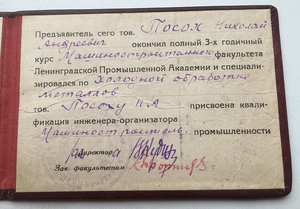 Предъявитель сего тов. Посох Николай
Андреевич окончил полный 3-х годичный
курс Машиностроительного факультета
Ленинградской Промышленной Академии и специали-
зировался по Холодной обработке
металлов
тов. Посоху Н.А присвоена квали-
фикация инженера-организатора
Машиностроитель. промышленности
Директор
Зав. факультетом